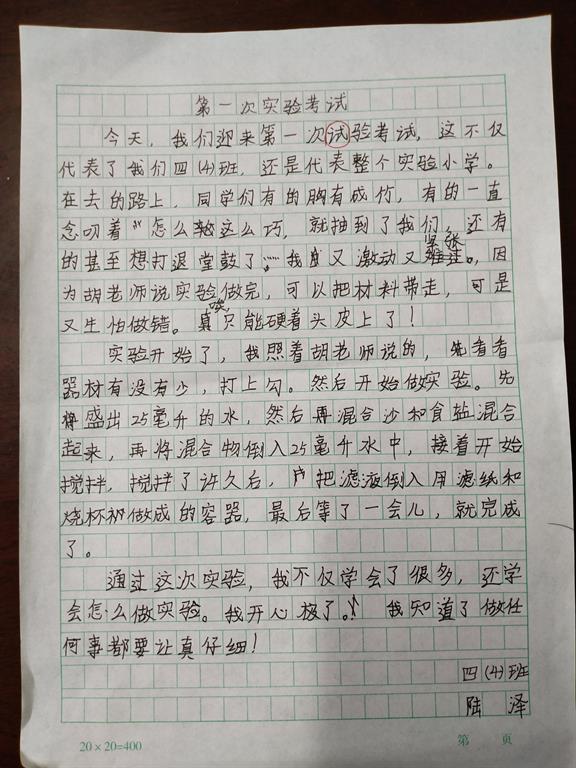 第一次实验考试
今天，我们迎来第一次试验考试，这不仅
代表了我们四(4)班，还是代表整个实验小学。
在去的路上，同学们有的胸有成竹，有的一直
念叨着“怎么这么巧，就抽到了我们，还有
的甚至想打退堂鼓了……我又激动又紧张。因
为胡老师说实验做完，可以把材料带走，可是
又生怕做错。唉只能硬着头皮上了！
实验开始了，我照着胡老师说的，先看看
器材有没有少，打上勾。然后开始做实验。先
盛出25毫升的水，然后再混合沙和食盐混合
起来，再将混合物倒入25毫升水中，接着开始
搅拌，搅拌了许久后，把滤液倒入用滤纸和
烧杯做成的容器，最后等了一会儿，就完成
了。
通过这次实验，我不仅学会了很多，还学
会怎么做实验。我开心极了！我知道了做任
何事都要让真仔细！
四(4)班
陆泽
20×20=400 第 页